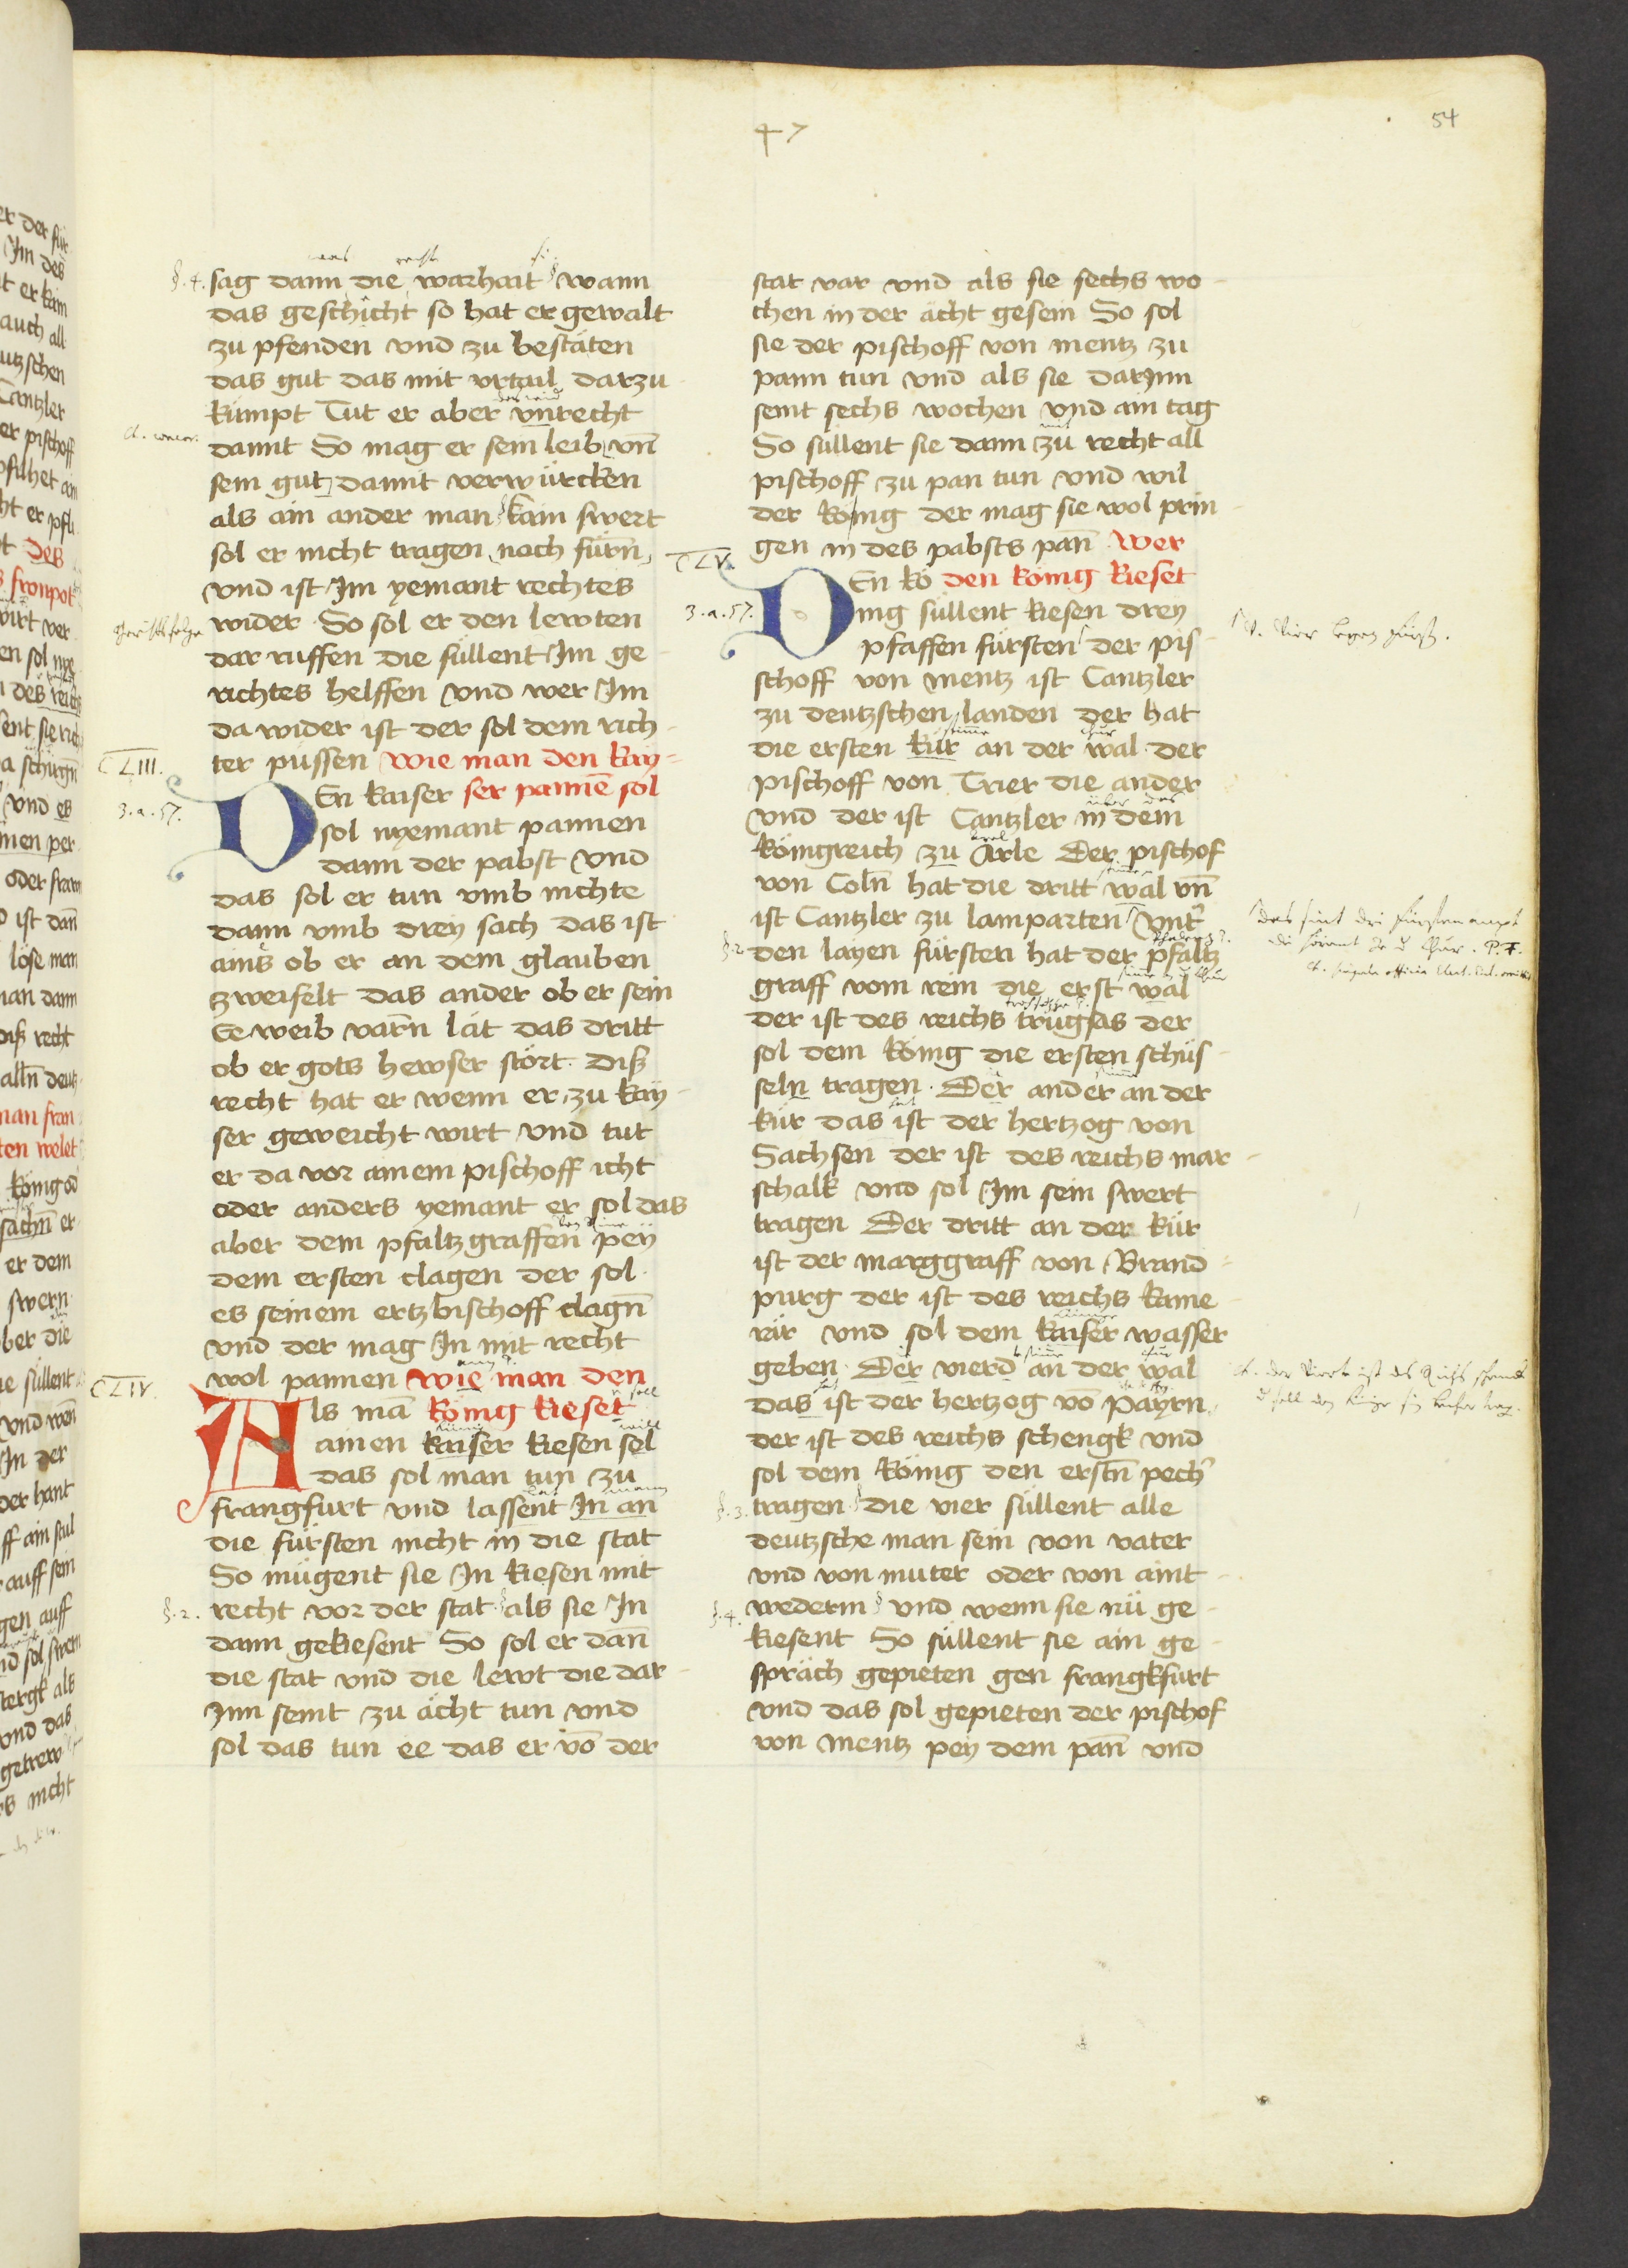 54
47
§.4. sag dann die warhait wann
das geschicht so hat er gewalt
zu pfenden vnd zu bestäten
das gut das mit vrtail darzu
kümpt Tut er aber vnrecht
damit So mag er sein leib vn̄
sein gut damit verwürcken
als ain ander man kain swert
sol er nicht tragen noch fürn̄
vnd ist Im yemant rechtes
wider So sol er den lewten
dar ruffen die süllent Im ge
richtes helffen vnd wer Im
da wider ist der sol dem rich
ter püssen wie man den kay=
CLIII.
3.a.57.
DEn kaiser ser pannē sol
sol nyemant pannen
dann der pabst vnd
das sol er tun vmb nichte
dann vmb drey sach das ist
ains ob er an dem glauben
zweifelt das ander ob er sein
Ee weib varn̄ lät das dritt
ob er gots hewser stört. Diß
recht hat er wenn er zu kay
ser geweicht wirt vnd tut
er da vor ainem pischoff icht
oder anders yemant er sol das
aber dem pfaltzgraffen pey
dem ersten clagen der sol
es seinem ertzbischoff clagn̄
vnd der mag In mit recht
wol pannen wie man den
CLIV.
Als mā könig kieset
ainen kaiser kiesen sol
das sol man tun zu
frangfurt vnd lassent In an
die fürsten nicht in die stat
So mügent sie In kiesen mit
§.2. recht vor der stat als sie In
dann gekiesent So sol er dan̄
die stat vnd die lewt die dar
Inn seint zu ächt tun vnd
sol das tun ee das er vō der
stat var vnd als sie sechs wo
chen in der ächt gesein So sol
sie der pischoff von mentz zu
pann tun vnd als sie darInn
seint sechs wochen vnd ain tag
So süllent sie dann zu recht all
pischoff zu pan tun vnd wil
der könig der mag sie wol prin
gen in des pabsts pan̄ Wer
CLV.
DEn kö den könig kieset
3.a.57.
nig süllent kiesen drey
pfaffen fürsten der pis
schoff von mentz ist Cantzler
zu deutzschen landen der hat
die ersten kür an der wal der
pischoff von Trier die ander
vnd der ist Cantzler in dem
königreich zu Arle Der pischof
von Coln̄ hat die dritt wal vn̄
ist Cantzler zu lamparten vnt̉
§.2. den layen fürsten hat der pfaltz
graff vom rein die erst wal
der ist des reichs trugsas der
sol dem könig die ersten schüs
seln tragen. Der ander an der
kür das ist der hertzog von
Sachsen der ist des reichs mar
schalk vnd sol Im sein swert
tragen Der dritt an der kür
ist der marggraff von Brand
purg der ist des reichs kame
rär vnd sol dem kaiser wasser
geben. Der vierd an der wal
das ist der hertzog vō Payrn
der ist des reichs schengk vnd
sol dem könig den erstn̄ pech̉
§.3. tragen die vier süllent alle
deutzsche man sein von vater
vnd von muter oder von aint
§.4. wederm vnd wenn sie nü ge
kiesent So süllent sie ain ge
spräch gepieten gen frangkfurt
vnd das sol gepieten der pischof
von mentz pey dem pan̄ vnd